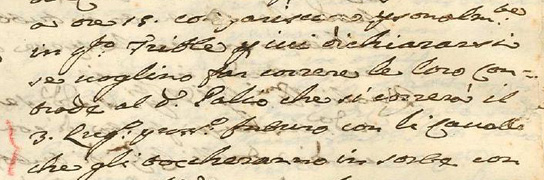 a ore 15. comparischino p̱sonalm.be
in q.to Trib.le p ivi dichiararsi
se voglino far correre le loro Con=
trade al d.o Palio che si correrà il
3. Lug.o p.mo futuro con li Cavalli
che gli toccheranno in sorte con